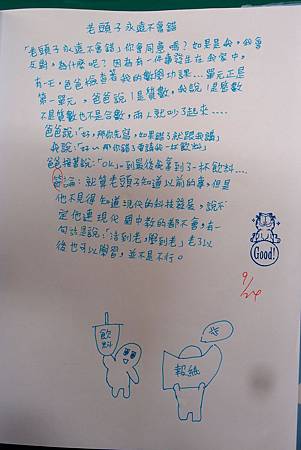 老頭子永遠不會錯
「老頭子永遠不會錯」你會同意嗎？如果是我，我會
反對，為什麼呢？因為有一件事發生在我家中，
有一天，爸爸檢查著我的數學功課……單元正是
第一單元，爸爸說1是質數，我說1是
不是質數也不是合數，兩人就吵了起來……
爸爸說：「好，那你先寫，如果錯了就跟我講」
我說：「好～那你錯了會請我一杯飲料」
爸爸接著說：「OK」—到最後我拿到了一杯飲料……
結論：就算老頭子知道以前的事，但是
他不見得知道現代的科技發展，說不
定他連現代國中教的都不會，有一
句話是說：「活到老，學到老」老了以
後也可以學習，並不是不行。
Good!
9/24
飲料
報紙